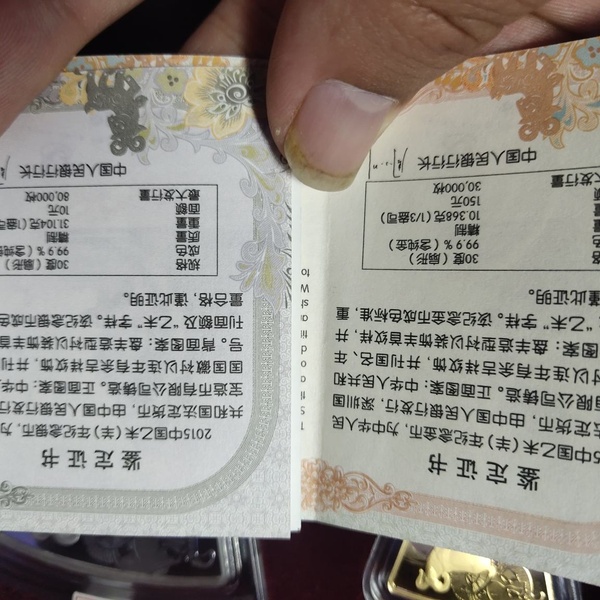 鉴定证书
015中国乙未（羊）年纪念金币，为中华人民
法定货币，由中国人民银行发行，深圳国
有限公司铸造。正面图案：中华人民共和
衬以连年有余吉祥纹饰，并刊国名、年
图案：盘羊造型衬以装饰羊首纹样，并
“乙未”字样。该纪念金币成色标准，重
谨此证明。
30度（扇形）
99.9％（含纯金）
精制
10.368克（1/3盎司）
面额 150元
大发行量 30,000枚
中国人民银行行长
鉴定证书
2015中国乙未（羊）年纪念银币，为
共和国法定货币，由中国人民银行发行
宝造币有限公司铸造。正面图案：中华
国国徽衬以连年有余吉祥纹饰，并刊
号。背面图案：盘羊造型衬以装饰羊首
刊面额及“乙未”字样。该纪念银币成
量合格，谨此证明。
规格 30度（扇形）
成色 99.9％（含纯
质量 精制
重量 31.104克（1盎司
面额 10元
最大发行量 80,000枚
中国人民银行行长